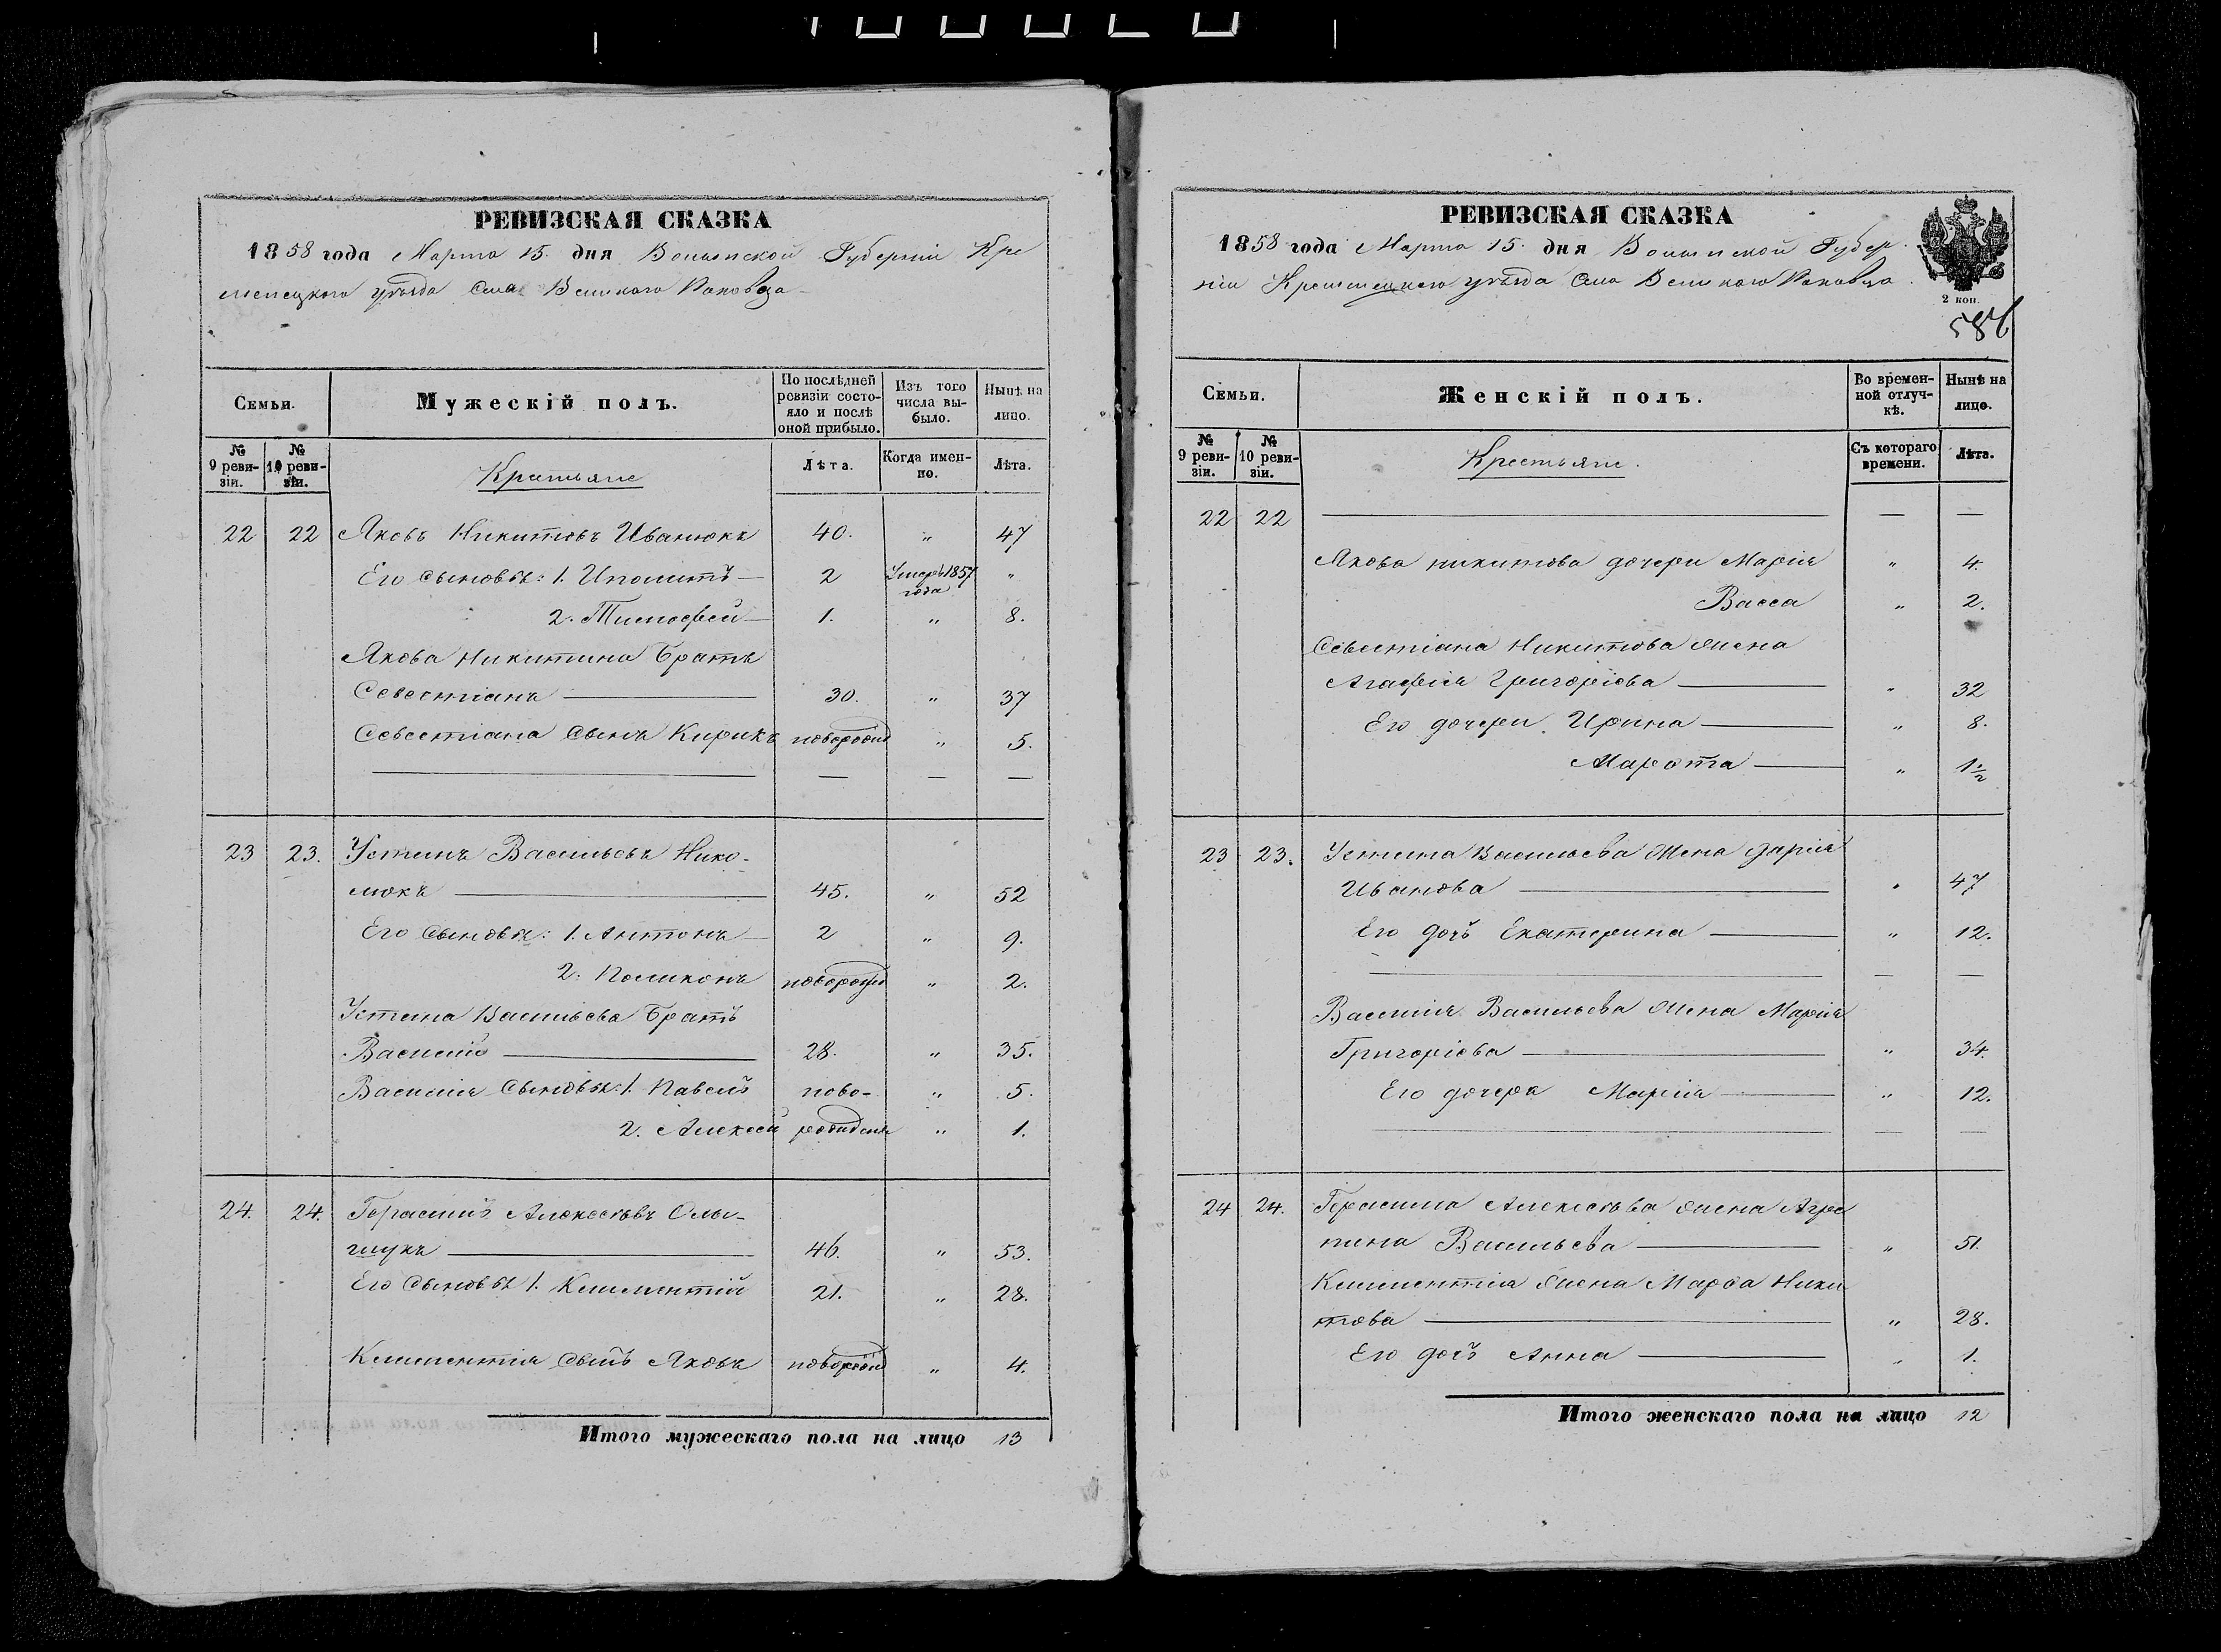 РЕВИЗСКАЯ СКАЗКА
1858 года Марта 15. дня Волынской Губерніи Кре
менецкого уѣзда Села Великаго Раковца
Семьи.
Мужескій полъ.
По послѣдней ревизіи состояло и послѣ оной прибыло.
Изъ того числа выбыло.
Нынѣ на лицо.
№ 9 ревизіи.
№ 10 ревизіи.
Крестьяне
Лѣта.
Когда именно.
Лѣта.
22 22 Яковъ Никитовъ Иванюкъ 40. " 47
Его сыновья: 1. Иполитъ — 2 Умеръ 1857 года "
2. Тимофей — 1. " 8.
Якова Никитина Братъ
Севестіанъ — 30. " 37
Севестіана сынъ Кирикъ новорожд " 5.
— — — —
23 23. Устинъ Васильевъ Нико-
люкъ — 45. " 52
Его сыновья: 1. Антонъ — 2 " 9.
2. Поликопъ новорожд " 2.
Устина Васильева Братъ
Василій — 28. " 35.
Василія Сыновья: 1. Павелъ ново- " 5.
2. Алексей рожденъ " 1.
24. 24. Герасимъ Алексеевъ
— 46. " 53.
Его сыновья 1. Климентій 21. " 28.
Климентія сынъ Яковъ новорожд " 4.
Итого мужескаго пола на лицо 13
РЕВИЗСКАЯ СКАЗКА
1858 года Марта 15. дня Волынской Губер
ніи Кременецкого уѣзда Села Великаго Раковца
2 коп.
586
Семьи.
Женскій полъ.
Во временной отлучкѣ.
Нынѣ на лицо.
№ 9 ревизіи.
№ 10 ревизіи.
Крестьяне.
Съ котораго времени.
Лѣта.
22 22 — — —
Якова никитова дочери Марія " 4.
Васса " 2.
Севестіана Никитова жена
Агафія Григоріева — " 32
Его дочери Ирина — " 8.
— " 1½
23 23. Устина Васильева Жена Дарія
Иванова — " 47
Его дочъ Екатерина — " 12.
— — —
Василія Васильева жена Марія
Григоріева — " 34.
Его дочеря Марія — " 12.
— — —
24 24. Герасима Алексеева жена Агре
пина Васильева — " 51.
Климентія жена Марфа Ники
това — " 28.
Его дочъ Анна — " 1.
Итого женскаго пола на лицо 12